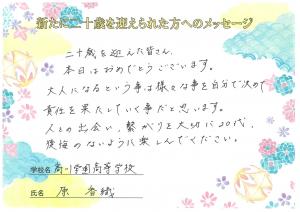 新たに二十歳を迎えられた方へのメッセージ
二十歳を迎えた皆さん、
本日はおめでとうございます。
大人になるという事は様々な事を自分で決めて
責任を果たしていく事だと思います。
人との出会い、繋がりを大切に20代、
後悔のないように楽しんでください。
学校名 学園高等学校
氏名 原 香織